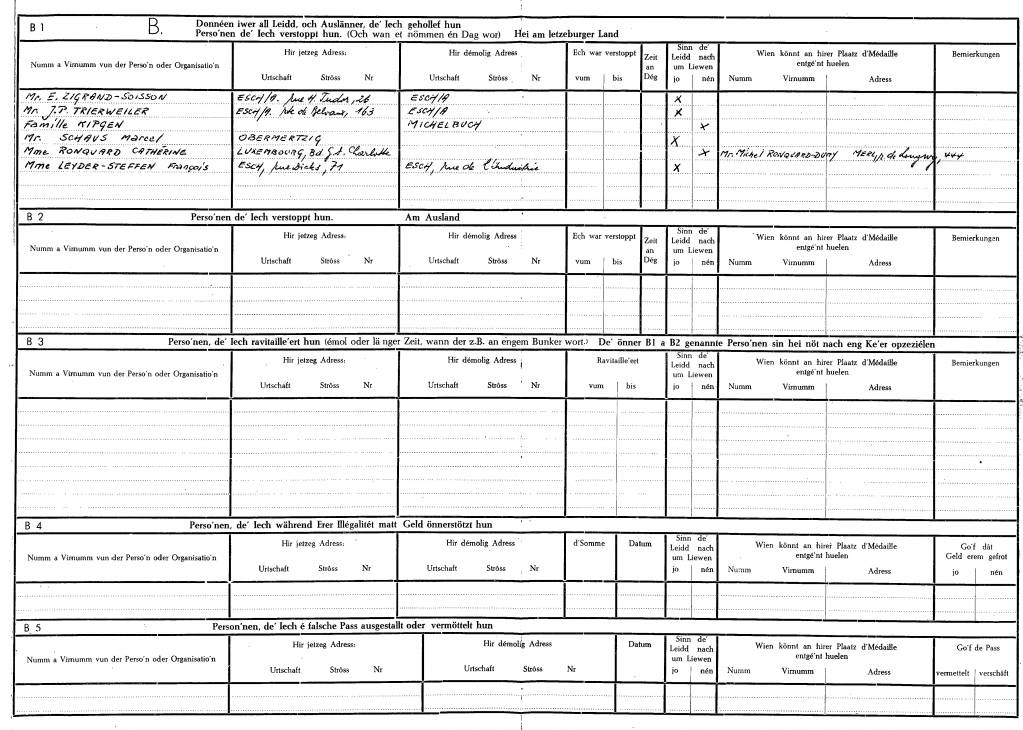 B 1 B. Donnéen iwer all Leidd, och Auslänner, de' Iech gehollef hun
Perso'nen de' Iech verstoppt hun. (Och wan et nömmen én Dag wor) Hei am letzeburger Land
Numm a Virnumm vun der Perso'n oder Organisatio'n Hir jetzeg Adress: Hir démolig Adress Ech war verstoppt Zeit an Dég Sinn de' Leidd nach um Liewen Wien könnt an hirer Plaatz d'Médaille entgé'nt huelen Bemierkungen
Urtschaft Ströss Nr Urtschaft Ströss. Nr vum bis jo nén Numm Virnumm Adress
Mr. E. ZIGRAND-SOISSON ESCH/A. rue H. Tudor, 26 ESCH/A x
Mr. J.P. TRIERWEILER ESCH/A. rte de Belvaux, 163 ESCH/A x
Famille KIPGEN MICHELBUCH x
Mr. SCHAUS Marcel OBERMERTZIG x
Mme RONQUARD CATHÉRINE LUXEMBOURG, Bd G.d. Charlotte x Mr. Michel RONQUARD-DUMY MERL, r. de Longwy, 444
Mme LEYDER-STEFFEN François ESCH, rue Dicks, 71 ESCH, rue de l'Industrie x
B 2 Perso'nen de' Iech verstoppt hun. Am Ausland
Numm a Virnumm vun der Perso'n oder Organisatio'n Hir jetzeg Adress: Hir démolig Adress Ech war verstoppt Zeit an Dég Sinn de' Leidd nach um Liewen Wien könnt an hirer Plaatz d'Médaille entgé'nt huelen Bemierkungen
Urtschaft Ströss Nr Urtschaft Ströss Nr vum bis jo nén Numm Virnumm Adress
B 3 Perso'nen, de' Iech ravitaille'ert hun (émol oder länger Zeit, wann der z.B. an engem Bunker wort.) De' önner B1 a B2 genannte Perso'nen sin hei nöt nach eng Ke'er opzeziélen
Numm a Virnumm vun der Perso'n oder Organisatio'n Hir jetzeg Adress: Hir démolig Adress Ravitaille'ert Sinn de' Leidd nach um Liewen Wien könnt an hirer Plaatz d'Médaille entgé'nt huelen Bemierkungen
Urtschaft Ströss Nr Urtschaft Ströss Nr vum bis jo nén Numm Virnumm Adress
B 4 Perso'nen, de' Iech während Erer Illégalitét matt Geld önnerstötzt hun
Numm a Virnumm vun der Perso'n oder Organisatio'n Hir jetzeg Adress: Hir démolig Adress d'Somme Datum Sinn de' Leidd nach um Liewen Wien könnt an hirer Plaatz d'Médaille entgé'nt huelen Go'f dát Geld erem gefrot
Urtschaft Ströss Nr Urtschaft Ströss Nr jo nén Numm Virnumm Adress jo nén
B 5 Person'nen, de' Iech é falsche Pass ausgestallt oder vermöttelt hun
Numm a Virnumm vun der Perso'n oder Organisatio'n Hir jetzeg Adress: Hir démolig Adress Datum Sinn de' Leidd nach um Liewen Wien könnt an hirer Plaatz d'Médaille entgé'nt huelen Go'f de Pass
Urtschaft Ströss Nr Urtschaft Ströss Nr jo nén Numm Virnumm Adress vermettelt verschàft